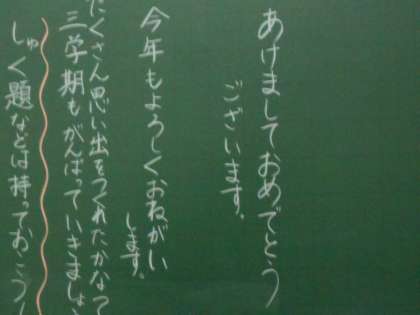 あけましておめでとう
ございます。
今年もよろしくおねがい
します。
たくさん思い出をつくれたかな？
三学期もがんばっていきましょう
しゅく題などは持っておこう！